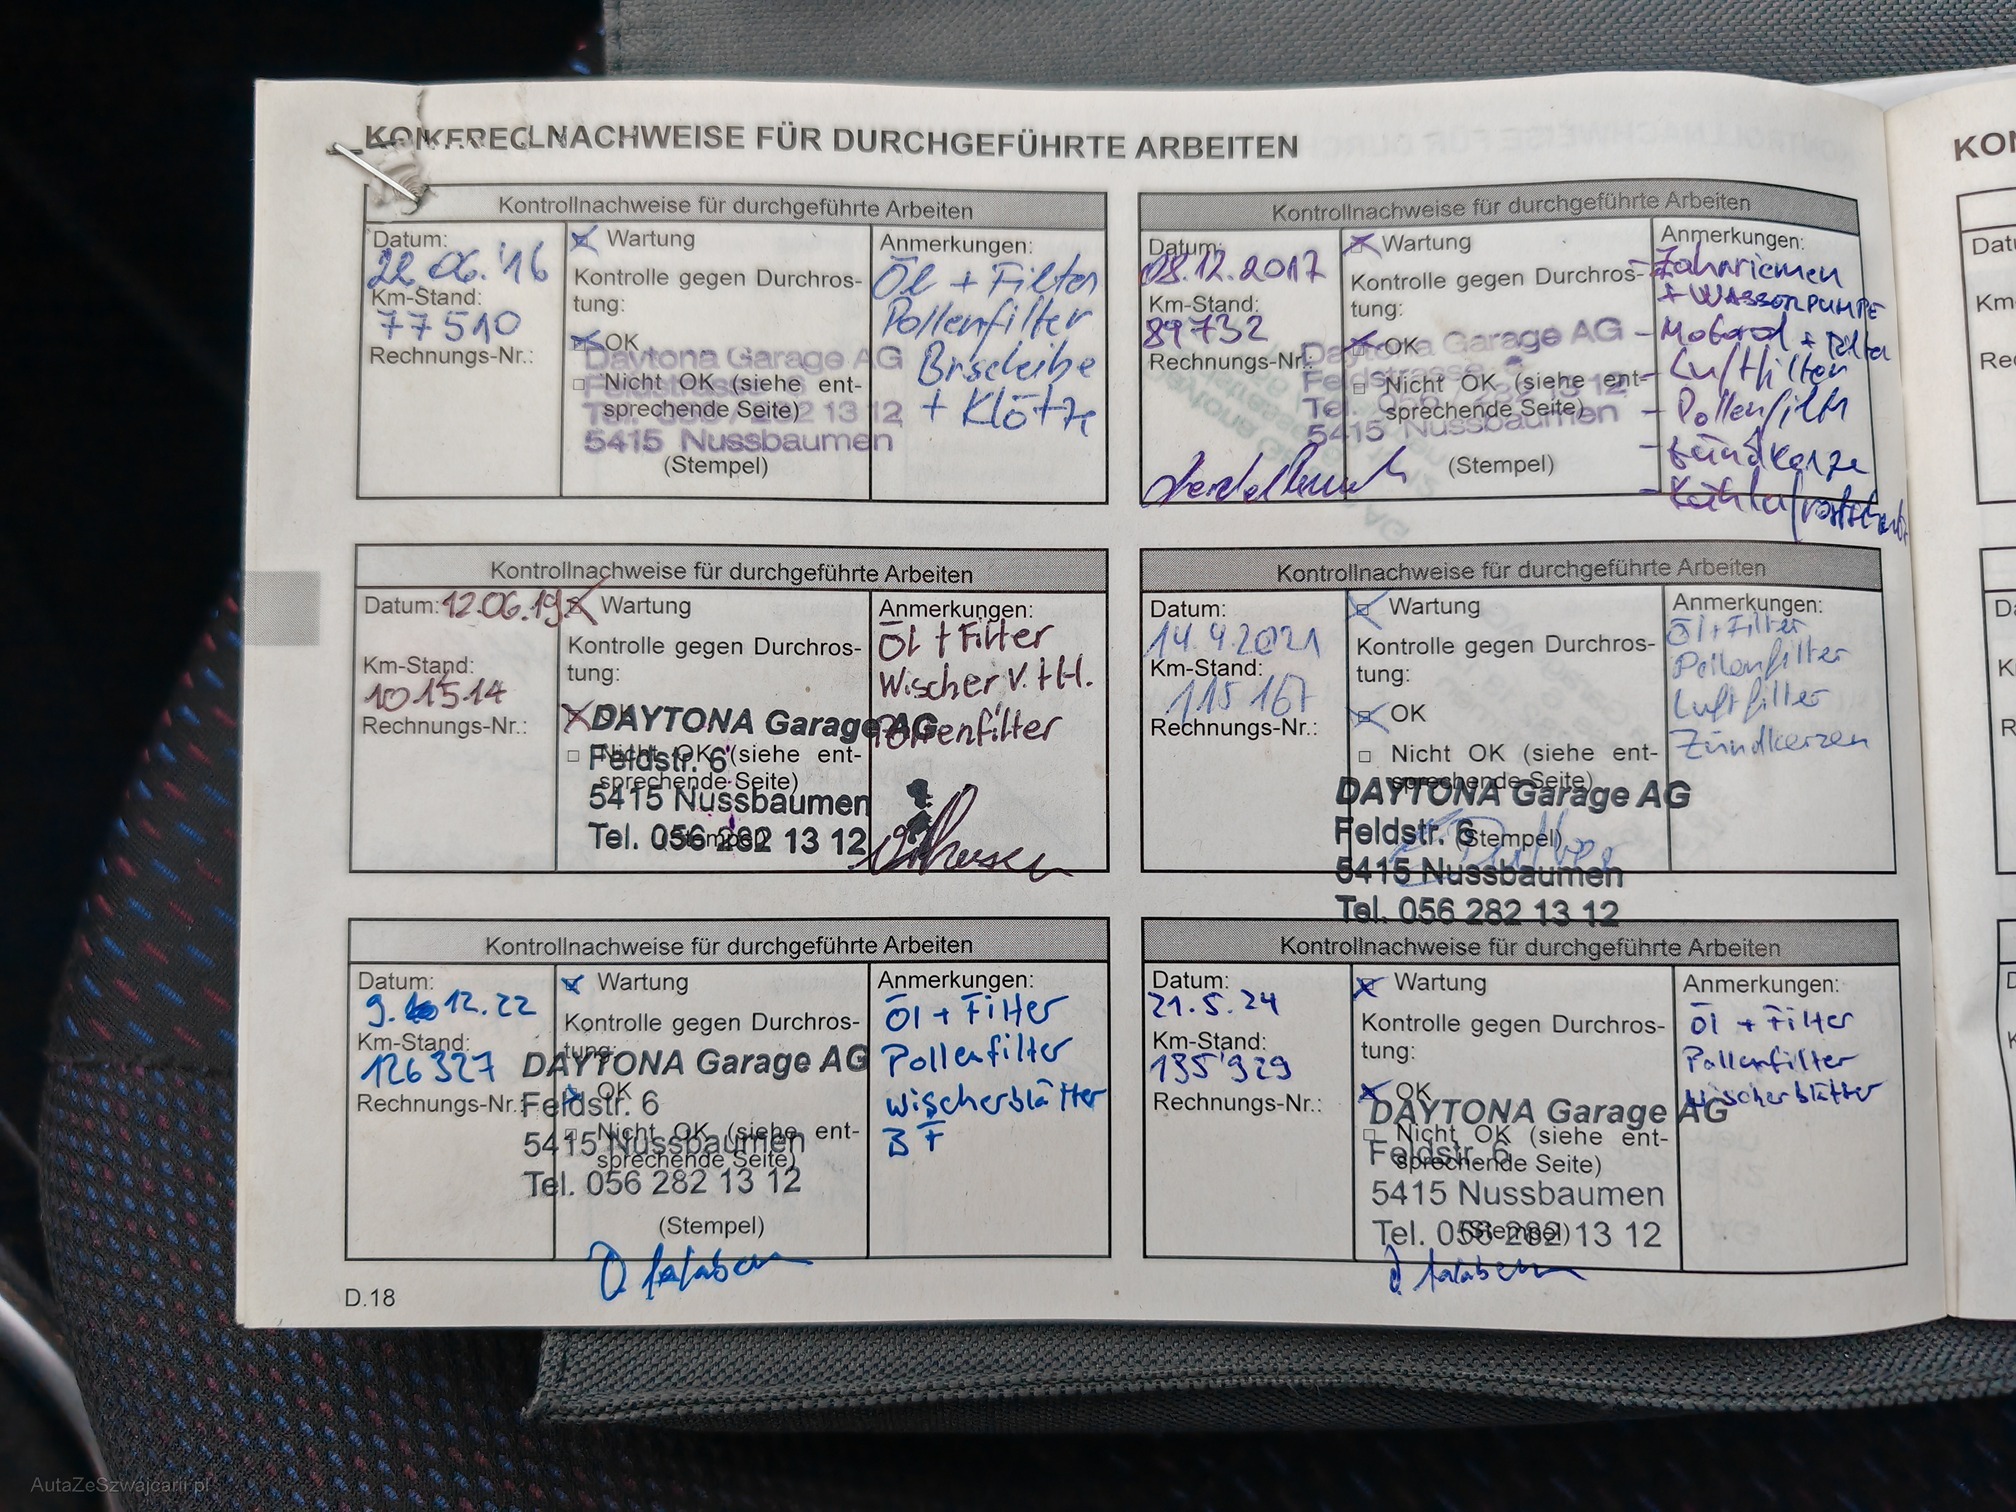 NACHWEISE FÜR DURCHGEFÜHRTE ARBEITEN
Kontrollnachweise für durchgeführte Arbeiten
Datum:
22.06.'16
Km-Stand:
77510
Rechnungs-Nr.:
Wartung
Kontrolle gegen Durchros-
tung:
OK
Nicht OK (siehe ent-
sprechende Seite)
(Stempel)
Daytona Garage AG
Feldstrasse 6
Tel. 056 / 282 13 12
5415 Nussbaumen
Anmerkungen:
Öl + Filter
Pollenfilter
Brscheibe
+ Klötze
Kontrollnachweise für durchgeführte Arbeiten
Datum:
08.12.2017
Km-Stand:
89732
Rechnungs-Nr.:
Wartung
Kontrolle gegen Durchros-
tung:
OK
Nicht OK (siehe ent-
sprechende Seite)
(Stempel)
Daytona Garage AG
Feldstrasse 6
Tel. 056 / 282 13 12
5415 Nussbaumen
Anmerkungen:
- Zahnriemen
+ WASSERPUMPE
- Motoröl + Filter
- Luftfilter
- Pollenfilter
- Zündkerze
Kontrollnachweise für durchgeführte Arbeiten
Datum: 12.06.19
Km-Stand:
101514
Rechnungs-Nr.:
Wartung
Kontrolle gegen Durchros-
tung:
OK
Nicht OK (siehe ent-
sprechende Seite)
(Stempel)
DAYTONA Garage AG
Feldstr. 6
5415 Nussbaumen
Tel. 056 282 13 12
Anmerkungen:
Öl + Filter
Wischer V. + H.
Pollenfilter
Kontrollnachweise für durchgeführte Arbeiten
Datum:
14.4.2021
Km-Stand:
115167
Rechnungs-Nr.:
Wartung
Kontrolle gegen Durchros-
tung:
OK
Nicht OK (siehe ent-
sprechende Seite)
(Stempel)
DAYTONA Garage AG
Feldstr. 6
5415 Nussbaumen
Tel. 056 282 13 12
Anmerkungen:
Öl + Filter
Pollenfilter
Luftfilter
Zündkerzen
Kontrollnachweise für durchgeführte Arbeiten
Datum:
9. 12.22
Km-Stand:
126327
Rechnungs-Nr.:
Wartung
Kontrolle gegen Durchros-
tung:
OK
Nicht OK (siehe ent-
sprechende Seite)
(Stempel)
DAYTONA Garage AG
Feldstr. 6
5415 Nussbaumen
Tel. 056 282 13 12
Anmerkungen:
Öl + Filter
Pollenfilter
Wischerblätter
B F
Kontrollnachweise für durchgeführte Arbeiten
Datum:
21.5.24
Km-Stand:
135'929
Rechnungs-Nr.:
Wartung
Kontrolle gegen Durchros-
tung:
OK
Nicht OK (siehe ent-
sprechende Seite)
(Stempel)
DAYTONA Garage AG
Feldstr. 6
5415 Nussbaumen
Tel. 056 282 13 12
Anmerkungen:
Öl + Filter
Pollenfilter
Wischerblätter
D.18
AutaZeSzwajcarii.pl